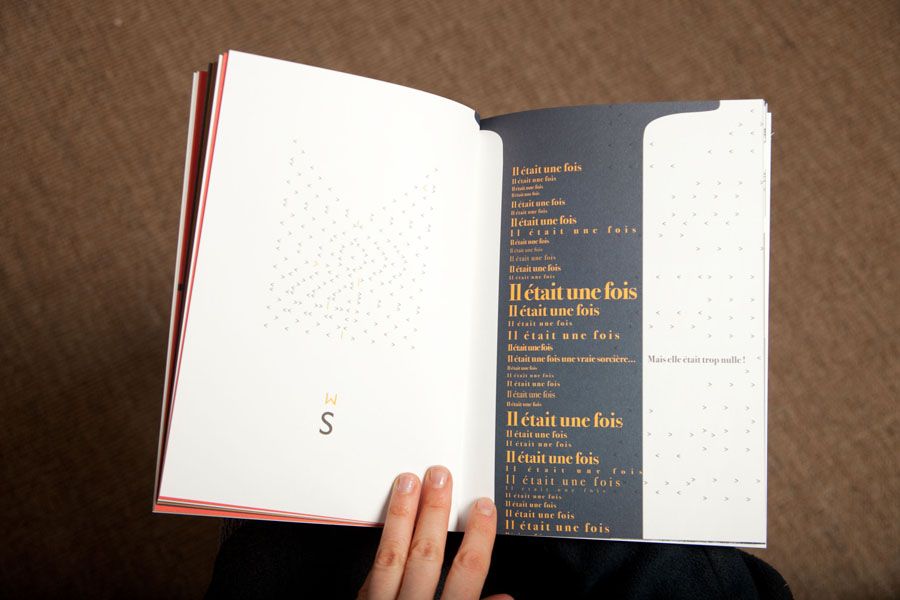 M
S
Il était une fois
Il était une fois
Il était une fois
Il était une fois
Il était une fois
Il était une fois
Il était une fois
Il était une fois
Il était une fois
Il était une fois
Il était une fois
Il était une fois
Il était une fois
Il était une fois
Il était une fois
Il était une fois
Il était une fois
Il était une fois
Il était une fois une vraie sorcière...
Il était une fois
Il était une fois
Il était une fois
Il était une fois
Il était une fois
Il était une fois
Il était une fois
Il était une fois
Il était une fois
Il était une fois
Il était une fois
Il était une fois
Il était une fois
Il était une fois
Il était une fois
Il était une fois
Mais elle était trop nulle !